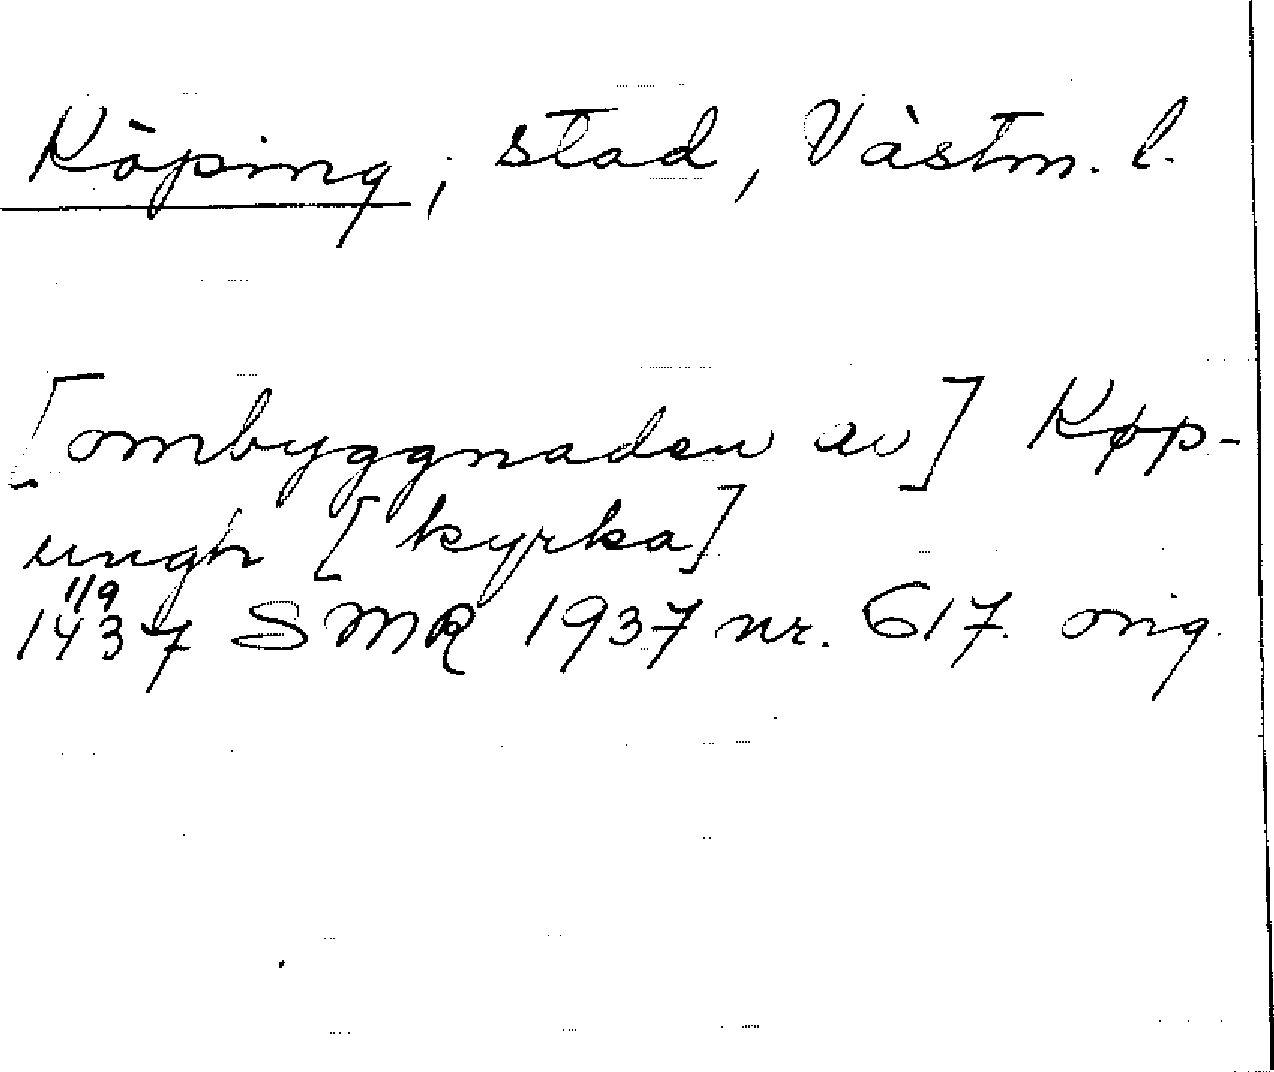 Köping, stad, Västm. l.
[ombyggnaden av] Køp-
ungh [kyrka]
1/9
1437 SMR 1937 nr. 617. orig.